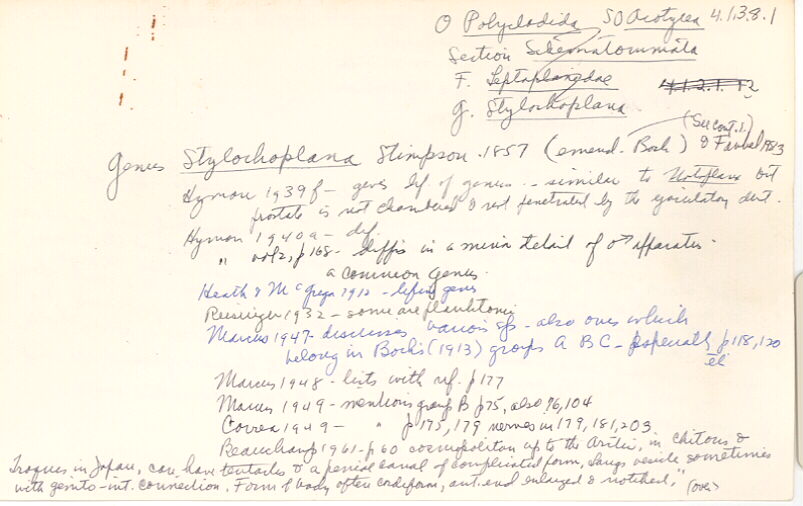 O Polycladida SO Acotylea 4.1.3.8.1
Section Schematommata
F. Leptoplanidae
g. Stylochoplana
(See cont. 1.)
Genus Stylochoplana Stimpson 1857 (emend. Bock) & Faubel 1983
Hyman 1939f - gives def of genus - similar to Notoplana but
prostate is not chambered & not penetrated by the ejaculatory duct.
Hyman 1940a - def.
" vol 2, p 168 - differs in a minor detail of ♂ apparatus -
a common genus.
Heath & McGregor 1912 - define genus
Reisinger 1932 - some are planktonic
Marcus 1947 - discusses various sp - also ones which
belong in Bock's (1913) groups A B C - especially p 118, 120
Marcus 1948 - lists with ref. p 177
Marcus 1949 - mentions group B p 75, also 76, 104
Correa 1949 - " p 175, 179 nerves in 179, 181, 203.
Beauchamp 1961 - p 60 cosmopolitan up to the Arctic, in chitons &
Troques in Japan, can have tentacles & a penial canal of complicated form, Langs vesicle sometimes
with genito-int. connection. Form of body often cordiform, ant. end enlarged & notched."
(over)